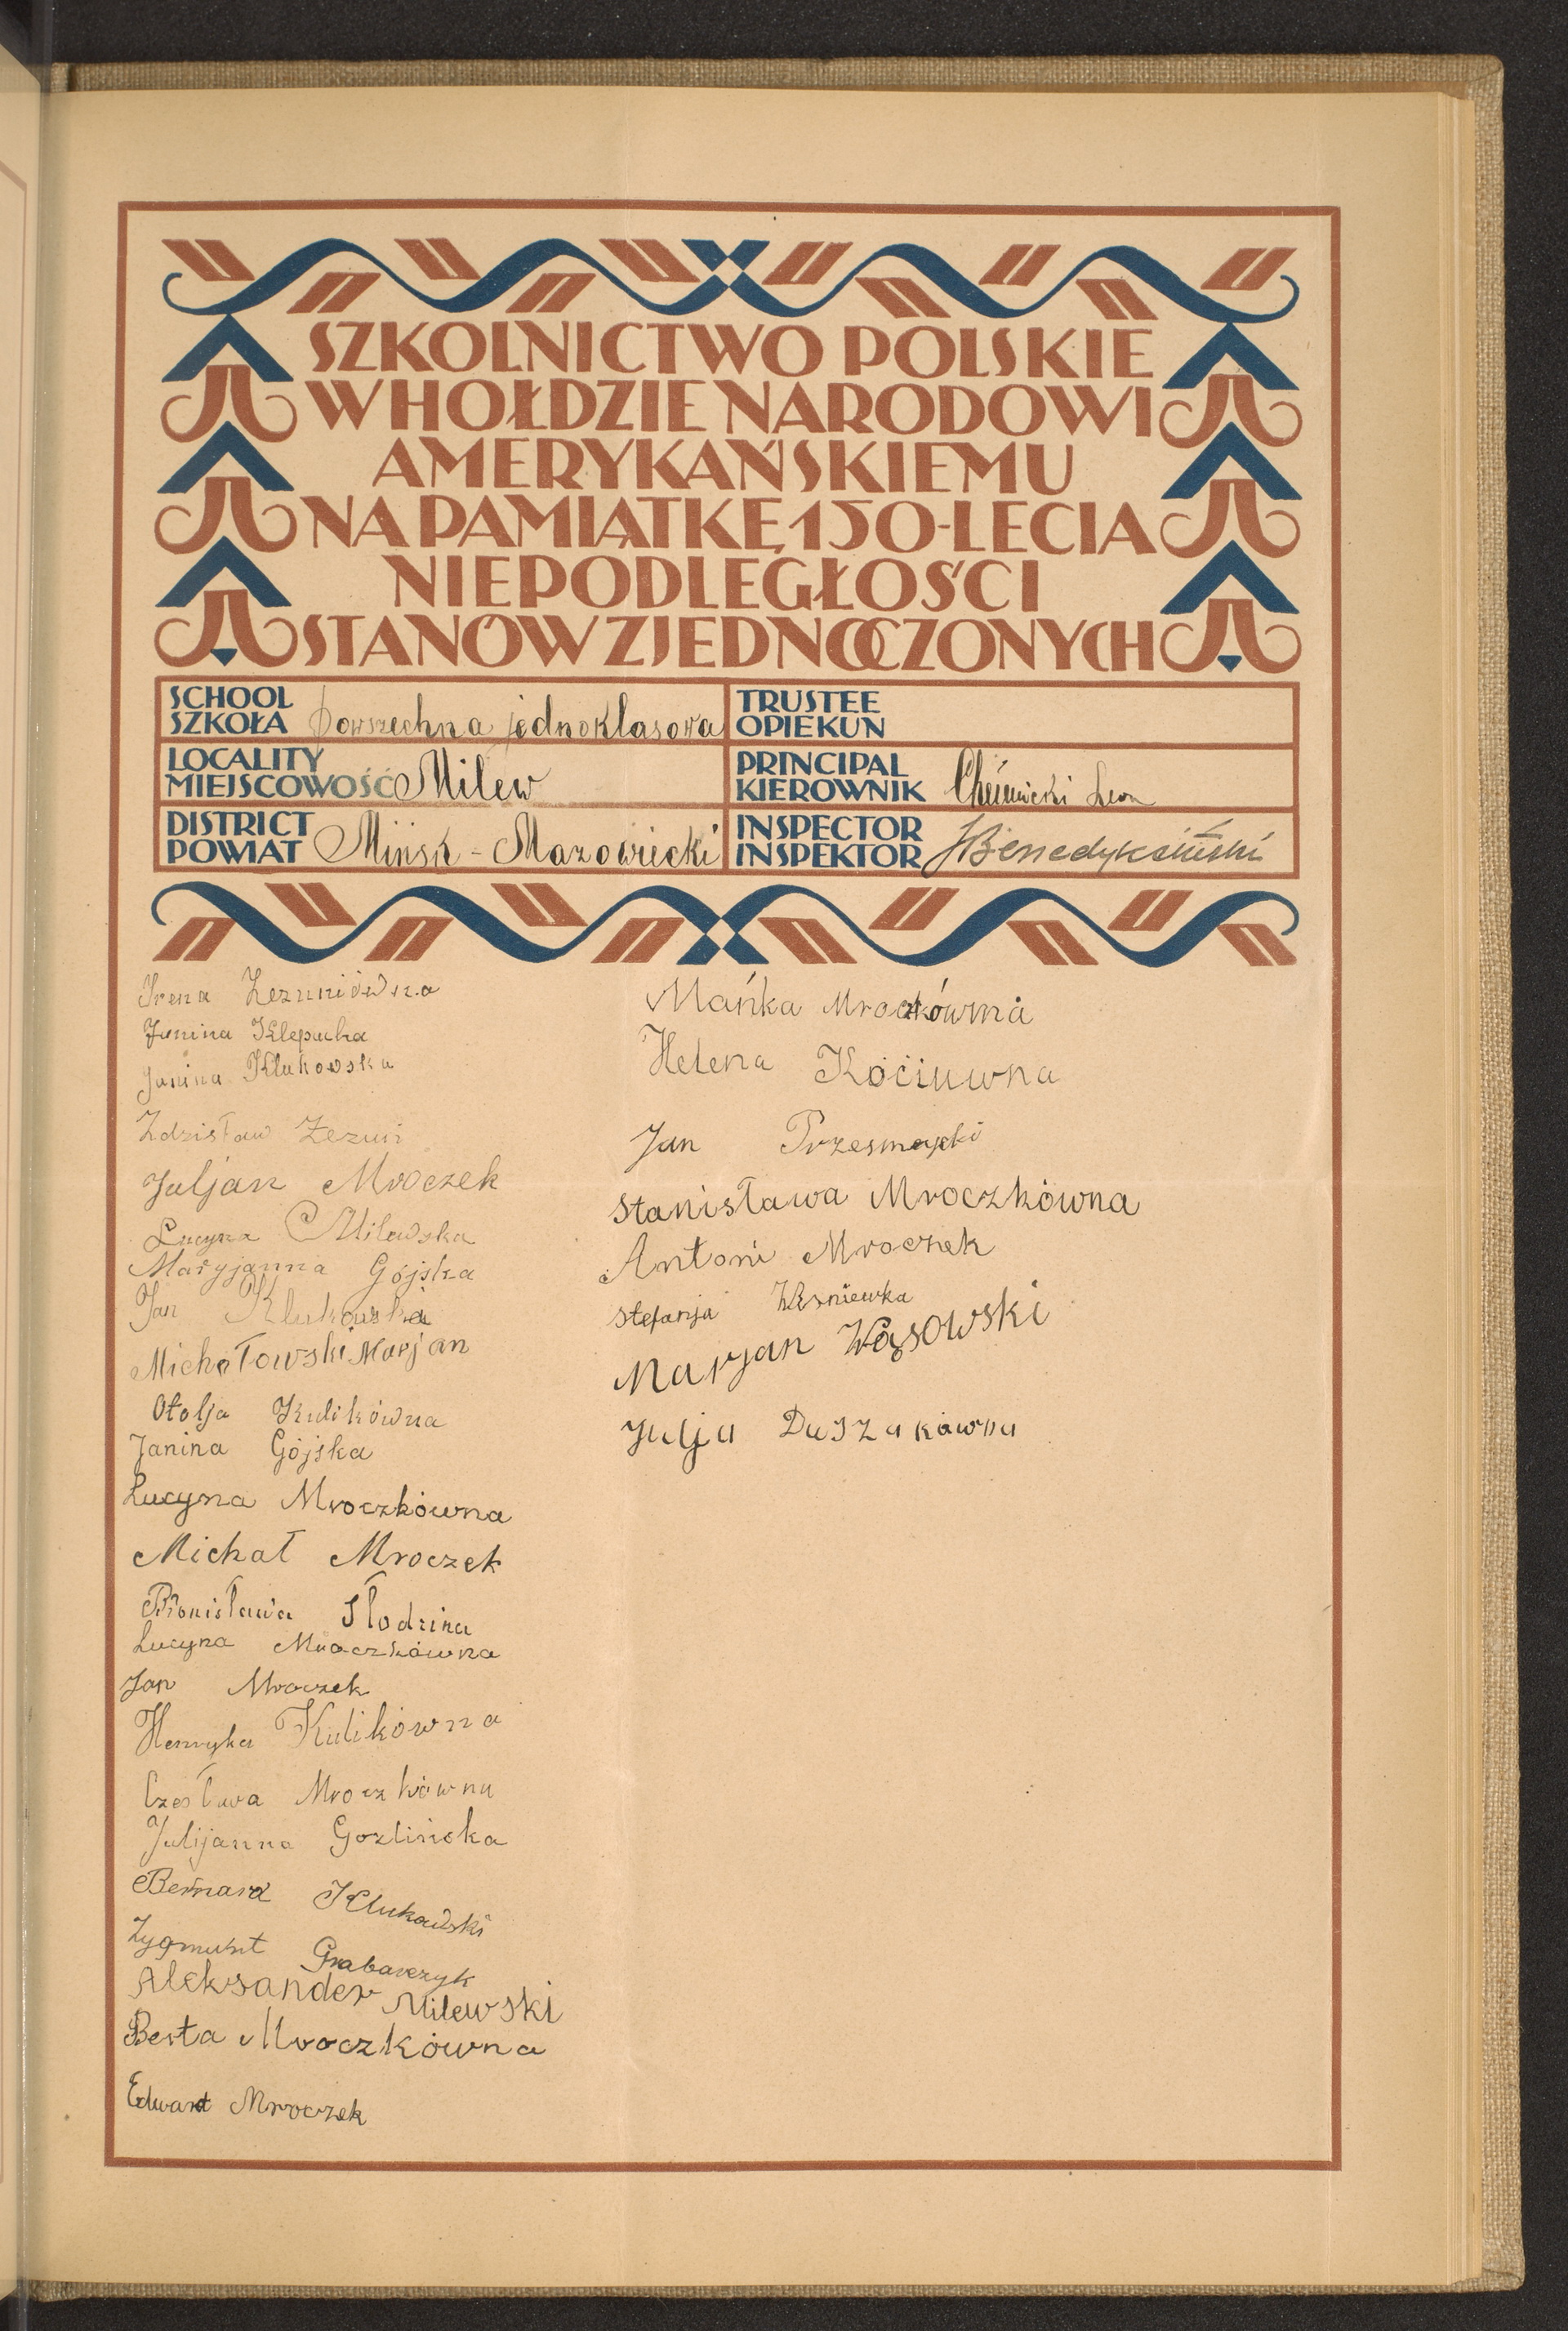 SZKOLNICTWO POLSKIE
W HOŁDZIE NARODOWI
AMERYKAŃSKIEMU
NA PAMIĄTKĘ 150-LECIA
NIEPODLEGŁOŚCI
STANÓW ZJEDNOCZONYCH
SCHOOL
SZKOŁA Powszechna jednoklasowa
TRUSTEE
OPIEKUN
LOCALITY
MIEJSCOWOŚĆ Milew
PRINCIPAL
KIEROWNIK Leon
DISTRICT
POWIAT Mińsk - Mazowiecki
INSPECTOR
INSPEKTOR JBenedyksiński
Irena
Janina Klepacka
Janina Klukowska
Zdzisław
Juljan Mroczek
Lucyna Milewska
Maryjanna Gójska
Jan
Michałowski Marjan
Otolja Kulikówna
Janina Gójska
Lucyna Mroczkówna
Michał Mroczek
Bronisława Słodzina
Lucyna Mroczkówna
Jan Mroczek
Henryka Kulikówna
Czesława Mroczkówna
Julijanna Gozlińska
Bernard Klukowski
Zygmunt Grabarczyk
Aleksander Milewski
Berta Mroczkówna
Edward Mroczek
Mańka Mroczkówna
Helena Kociuwna
Jan Przesmycki
Stanisława Mroczkówna
Antoni Mroczek
Stefanja Wiśniewka
Marjan Wąsowski
Julja Duszakówna